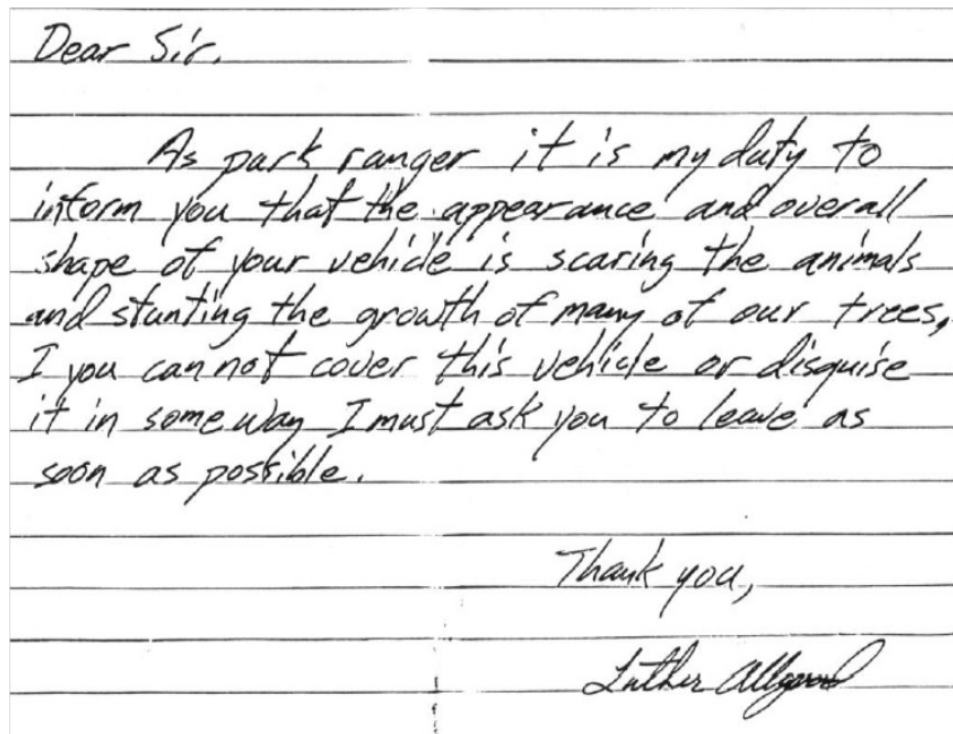 Dear Sir,
As park ranger it is my duty to
inform you that the appearance and overall
shape of your vehicle is scaring the animals
and stunting the growth of many of our trees,
I you can not cover this vehicle or disguise
it in some way I must ask you to leave as
soon as possible.
Thank you,
Luther Allgood